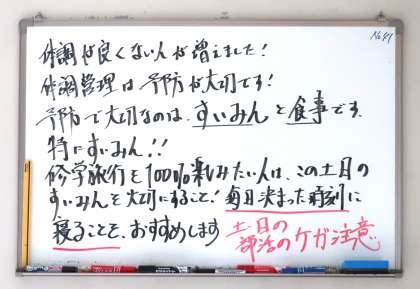 No.47
体調が良くない人が増えました!
体調管理は予防が大切です!
予防で大切なのは、すいみんと食事です。
特にすいみん!!
修学旅行を100%楽しみたい人は、この土日の
すいみんを大切にすること!毎日決まった時刻に
寝ることを、おすすめします
土日の
部活のケガ注意